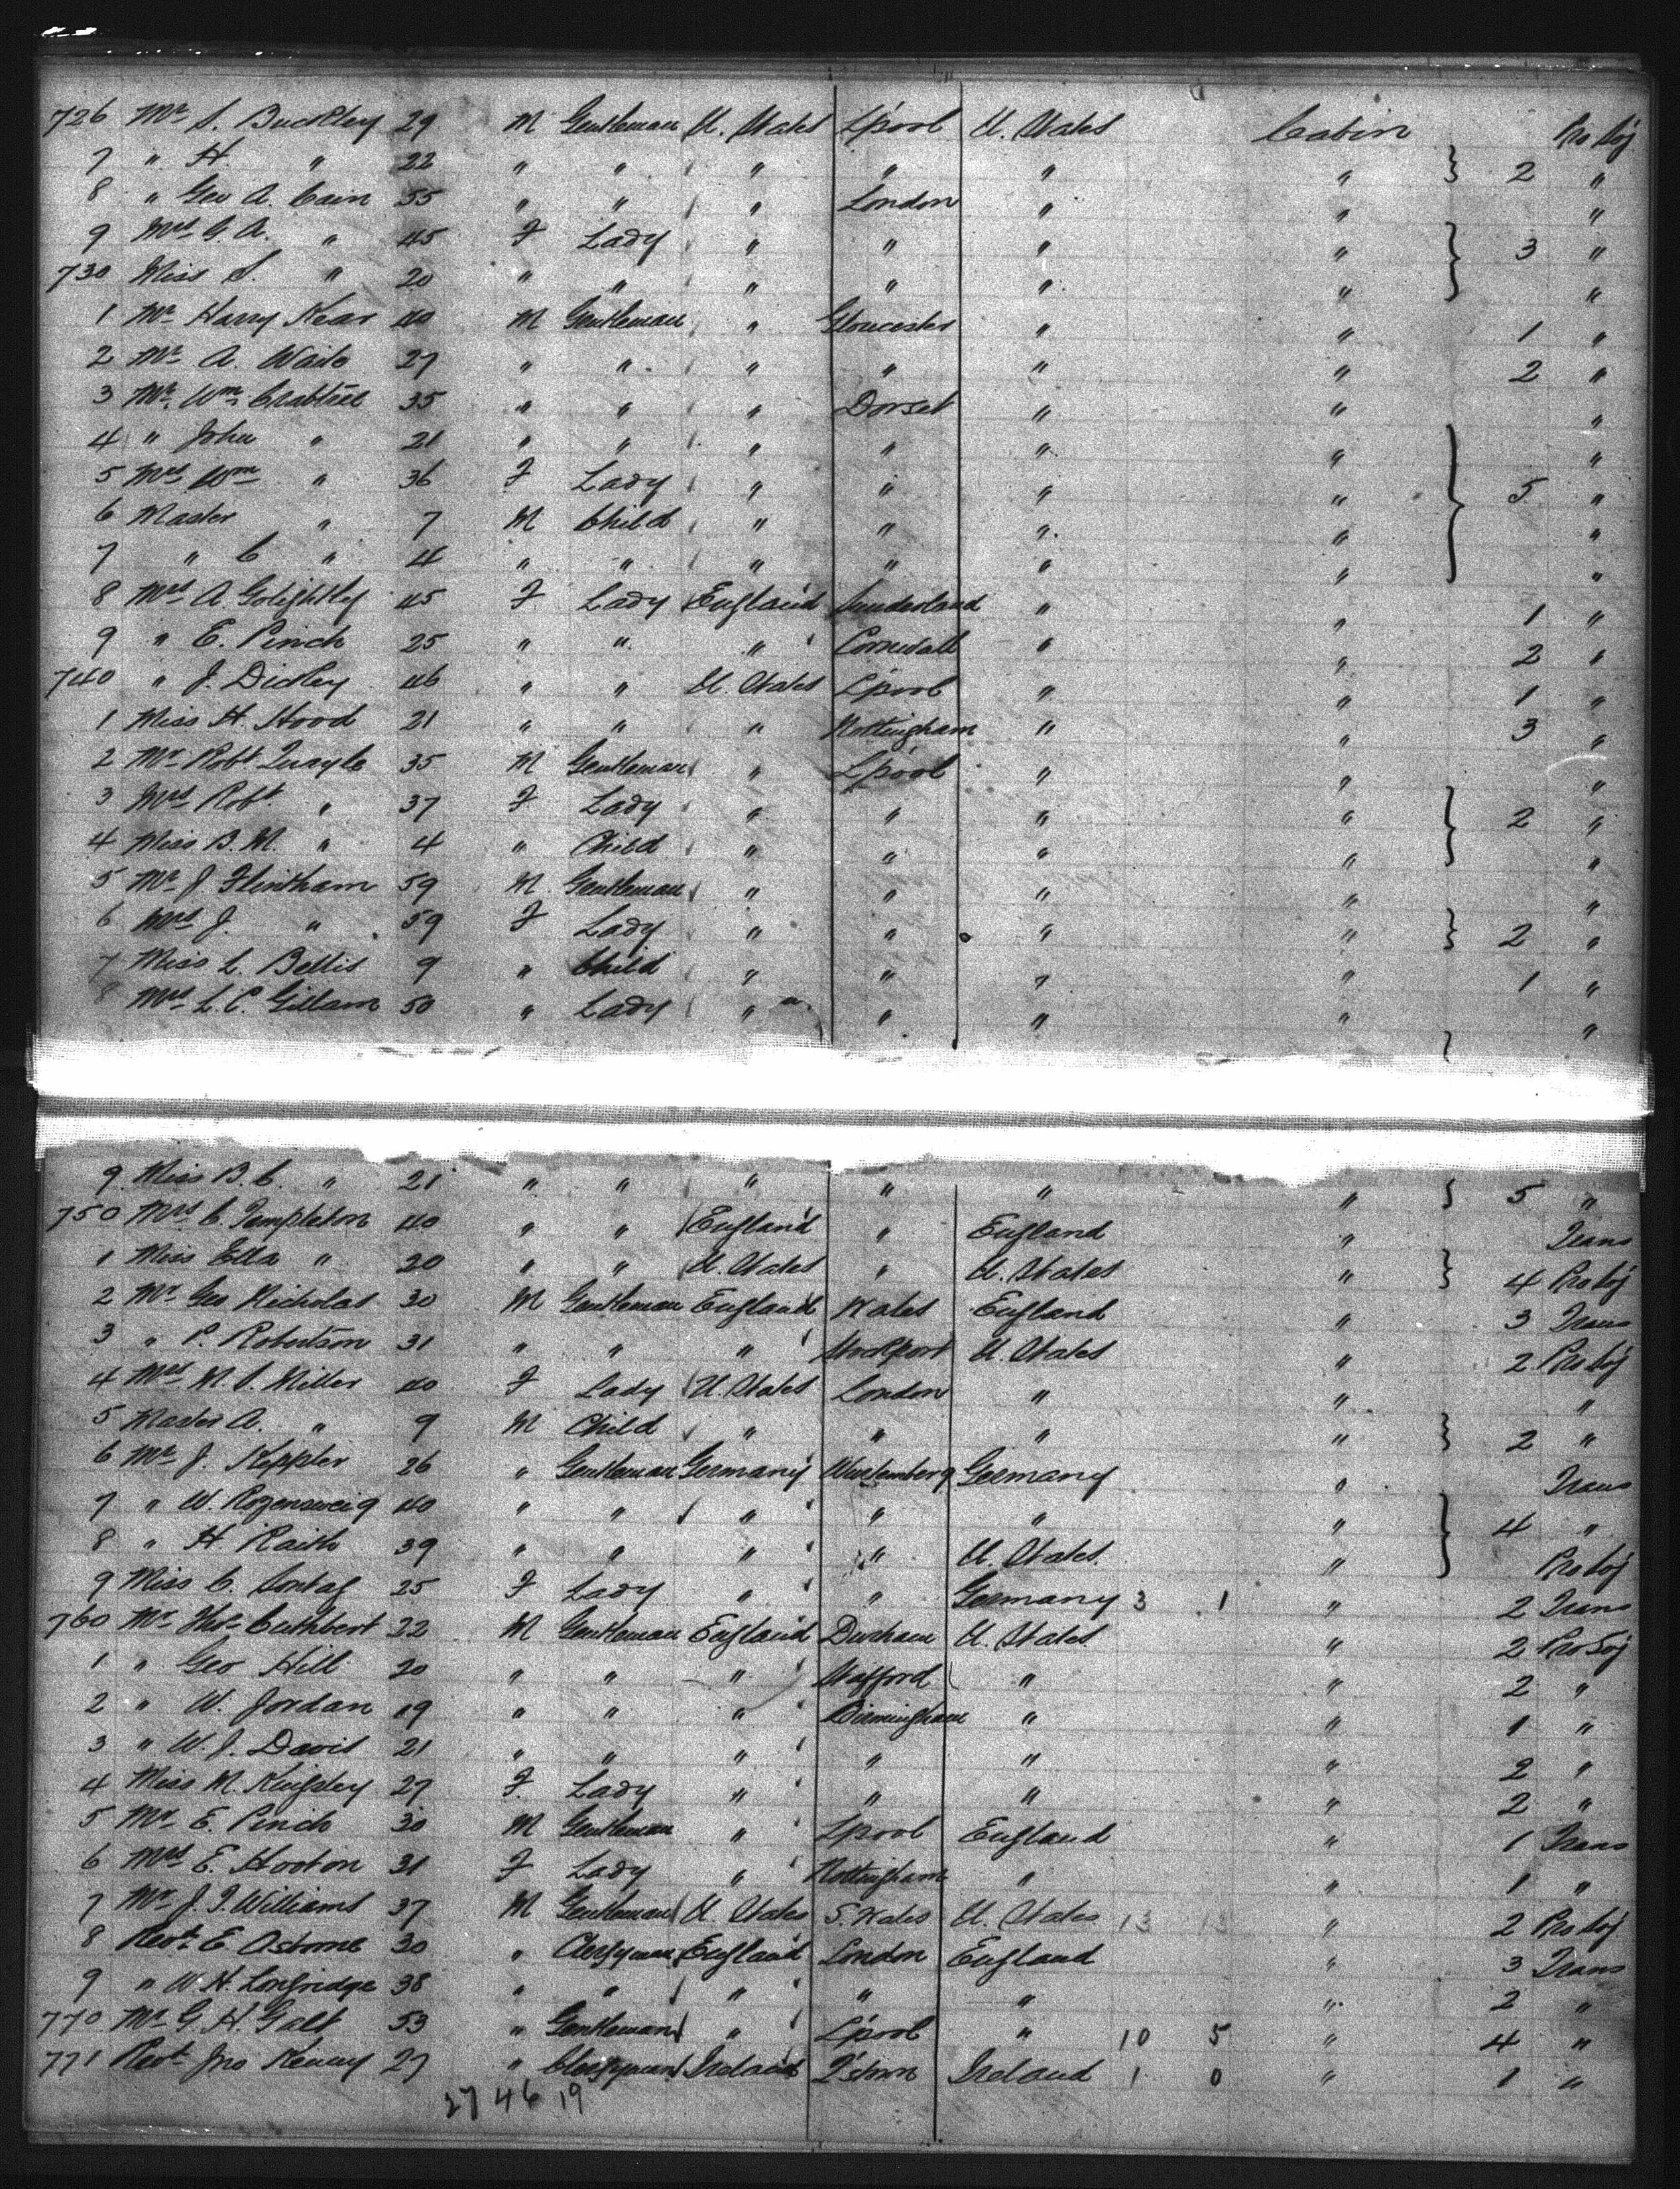 726 Mr S. Buckley 29 M Gentleman U. States L'pool U. States Cabin Pro Soj
7 " H. " 22 " " " " " " 2 "
8 " Geo A. Cain 55 " " " London " " "
9 Mrs G. A. " 45 F Lady " " " " 3 "
730 Miss S. " 20 " " " " " " "
1 Mr Harry Kear 40 M Gentleman " Gloucester " " 1 "
2 Mr A. Waite 27 " " " " " " 2 "
3 Mr Wm Crabtree 35 " " " Dorset " " "
4 " John " 21 " " " " " " "
5 Mrs Wm " 36 F Lady " " " " 5 "
6 Master " 7 M Child " " " " "
7 " C " 4 " " " " " " "
8 Mrs A. Golightly 45 F Lady England Sunderland " " 1 "
9 " E. Pinch 25 " " " Cornwall " " 2 "
740 " J. Dickey 46 " " U. States L'pool " " 1 "
1 Miss H. Hood 21 " " " Nottingham " " 3 "
2 Mr Robt Quayle 35 M Gentleman " L'pool " " "
3 Mrs Robt " 37 F Lady " " " " 2 "
4 Miss B. M. " 4 " Child " " " " "
5 Mr J. Flintham 59 M Gentleman " " " " "
6 Mrs J. " 59 F Lady " " " " 2 "
7 Miss L. Bellis 9 " Child " " " " 1 "
8 Mrs L. C. Gillam 50 " Lady " " " " "
9 Miss B. C. " 21 " " " " " " 5 "
750 Mrs C. Templeton 40 " " England " England " Trans
1 Miss Ella " 20 " " U. States " U. States " 4 Pro Soj
2 Mr Geo Nicholas 30 M Gentleman England Wales England " 3 Trans
3 " P. Robertson 31 " " " Stockport U. States " 2 Pro Soj
4 Mrs M. S. Miller 40 F Lady U. States London " " "
5 Master A. " 9 M Child " " " " 2 "
6 Mr J. Keppler 26 " Gentleman Germany Wurtemberg Germany " Trans
7 " W. Rozensweig 40 " " " " " " 4 "
8 " H. Raith 39 " " " " U. States " Pro Soj
9 Miss C. Sontag 25 F Lady " " Germany 3 1 " 2 Trans
760 Mr Thos Cuthbert 22 M Gentleman England Durham U. States " 2 Pro Soj
1 " Geo Hill 20 " " " Stafford " " 2 "
2 " W. Jordan 19 " " " Birmingham " " 1 "
3 " W. J. Davis 21 " " " " " " 2 "
4 Miss M. Kingsley 27 F Lady " " " " 2 "
5 Mr E. Pinch 30 M Gentleman " L'pool England " 1 Trans
6 Mrs E. Hooton 31 F Lady " Nottingham " " 1 "
7 Mr J. J. Williams 37 M Gentleman U. States S. Wales U. States 13 13 " 2 Pro Soj
8 Revd E. Osborne 30 " Clergyman England London England " 3 Trans
9 " W. H. Longridge 38 " " " " " " 2 "
770 Mr G. H. Galt 53 " Gentleman " L'pool " 10 5 " 4 "
771 Revd Jno Kenny 27 " Clergyman Ireland Q'stown Ireland 1 0 " 1 "
27 46 19